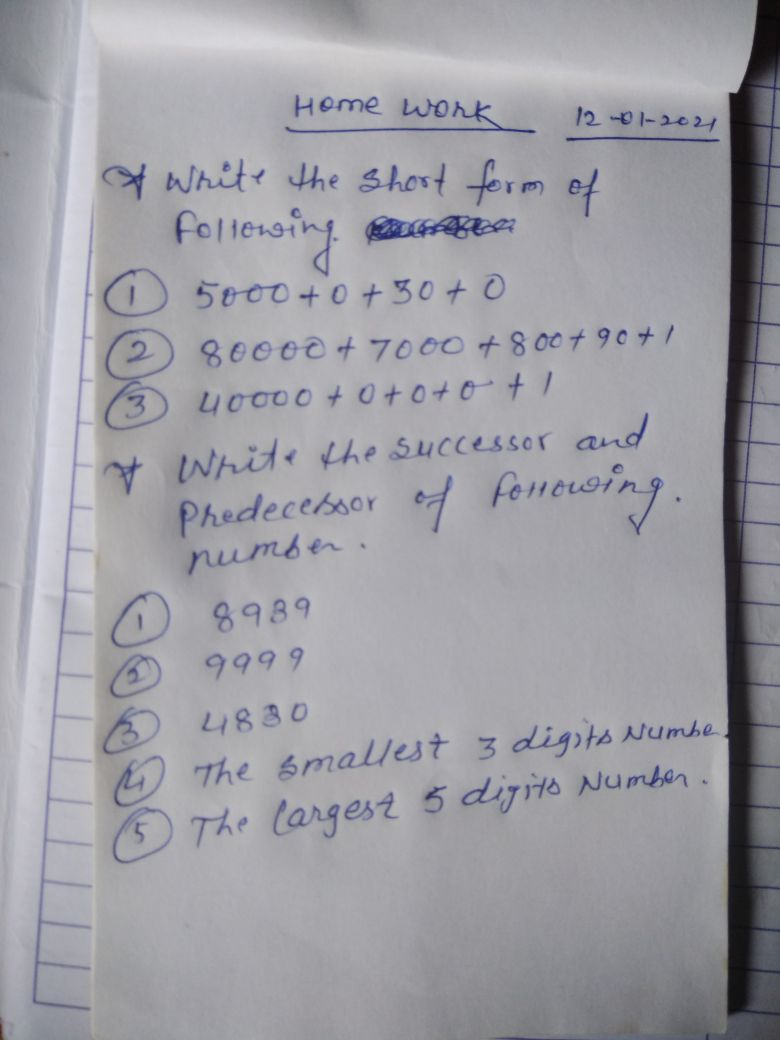 Home Work 12-01-2021
* Write the short form of
following.
1 5000+0+30+0
2 80000+7000+800+90+1
3 40000+0+0+0+1
* Write the successor and
predecessor of following.
number.
1 8939
2 9999
3 4830
4 The smallest 3 digits Numbe
5 The largest 5 digits Number.